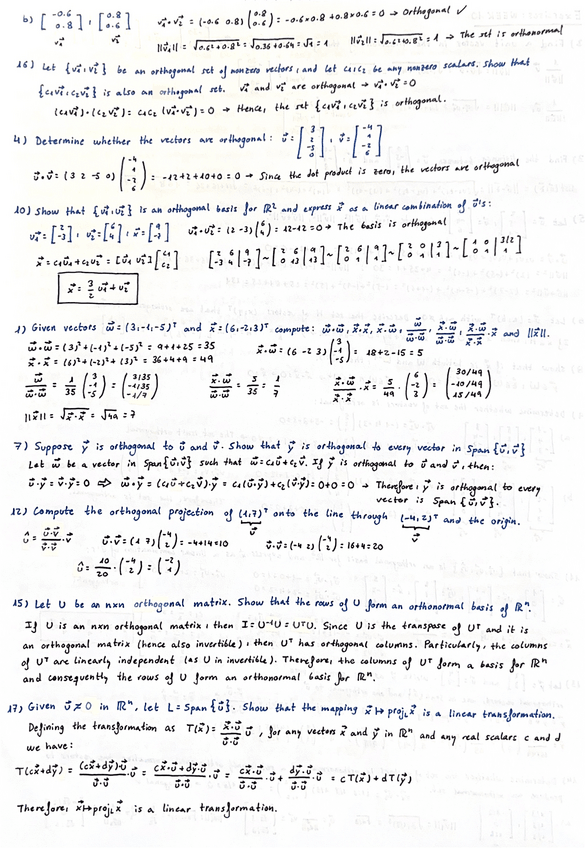 b) [-0.6 0.8], [0.8 0.6] v₁⃗·v₂⃗ = (-0.6 0.8)(0.8 0.6) = -0.6×0.8+0.8×0.6 = 0 → Orthogonal ✓
v₁⃗ v₂⃗ ||v₁⃗|| = √0.6²+0.8² = √0.36+0.64 = √1 = 1 ||v₂⃗|| = √0.6²+0.8² = 1 → The set is orthonormal
16) Let {v₁⃗,v₂⃗} be an orthogonal set of nonzero vectors, and let c₁,c₂ be any nonzero scalars. Show that
{c₁v₁⃗,c₂v₂⃗} is also an orthogonal set. v₁⃗ and v₂⃗ are orthogonal → v₁⃗·v₂⃗ = 0
(c₁v₁⃗)·(c₂v₂⃗) = c₁c₂ (v₁⃗·v₂⃗) = 0 → Hence, the set {c₁v₁⃗,c₂v₂⃗} is orthogonal.
4) Determine whether the vectors are orthogonal: u⃗ = [3 2 -5 0], v⃗ = [-4 1 -2 6]
u⃗·v⃗ = (3 2 -5 0)(-4 1 -2 6) = -12+2+10+0 = 0 → Since the dot product is zero, the vectors are orthogonal
10) Show that {u₁⃗,u₂⃗} is an orthogonal basis for ℝ² and express x⃗ as a linear combination of u⃗'s:
u₁⃗ = [2 -3], u₂⃗ = [6 4], x⃗ = [9 -7] u₁⃗·u₂⃗ = (2 -3)(6 4) = 12-12 = 0 → The basis is orthogonal
x⃗ = c₁u₁⃗+c₂u₂⃗ = [u₁⃗ u₂⃗][c₁ c₂] [2 6 | 9; -3 4 | -7] ~ [2 6 | 9; 0 13 | 13/2] ~ [2 6 | 9; 0 1 | 1] ~ [2 0 | 3; 0 1 | 1] ~ [1 0 | 3/2; 0 1 | 1]
x⃗ = 3/2 u₁⃗ + u₂⃗
1) Given vectors w⃗ = (3,-1,-5)ᵀ and x⃗ = (6,-2,3)ᵀ compute: w⃗·w⃗, x⃗·x⃗, x⃗·w⃗, w⃗/w⃗·w⃗, x⃗·w⃗/w⃗·w⃗, x⃗·w⃗/x⃗·x⃗ ·x⃗ and ||x⃗||.
w⃗·w⃗ = (3)²+(-1)²+(-5)² = 9+1+25 = 35 x⃗·w⃗ = (6 -2 3)(3 -1 -5) = 18+2-15 = 5
x⃗·x⃗ = (6)²+(-2)²+(3)² = 36+4+9 = 49
w⃗/w⃗·w⃗ = 1/35 (3 -1 -5) = (3/35 -1/35 -1/7) x⃗·w⃗/w⃗·w⃗ = 5/35 = 1/7 x⃗·w⃗/x⃗·x⃗ ·x⃗ = 5/49 ·(6 -2 3) = (30/49 -10/49 15/49)
||x⃗|| = √x⃗·x⃗ = √49 = 7
7) Suppose y⃗ is orthogonal to u⃗ and v⃗. Show that y⃗ is orthogonal to every vector in Span{u⃗,v⃗}
Let w⃗ be a vector in Span{u⃗,v⃗} such that w⃗ = c₁u⃗+c₂v⃗. If y⃗ is orthogonal to u⃗ and v⃗, then:
u⃗·y⃗ = v⃗·y⃗ = 0 ⇒ w⃗·y⃗ = (c₁u⃗+c₂v⃗)·y⃗ = c₁(u⃗·y⃗)+c₂(v⃗·y⃗) = 0+0 = 0 → Therefore, y⃗ is orthogonal to every
vector is Span{u⃗,v⃗}.
12) Compute the orthogonal projection of (1,7)ᵀ onto the line through (-4,2)ᵀ and the origin.
u⃗ v⃗
û = u⃗·v⃗/v⃗·v⃗ ·v⃗ u⃗·v⃗ = (1 7)(-4 2) = -4+14 = 10 v⃗·v⃗ = (-4 2)(-4 2) = 16+4 = 20
û = 10/20 ·(-4 2) = (-2 1)
15) Let U be an n×n orthogonal matrix. Show that the rows of U form an orthonormal basis of ℝⁿ.
If U is an n×n orthogonal matrix, then I = U⁻¹U = UᵀU. Since U is the transpose of Uᵀ and it is
an orthogonal matrix (hence also invertible), then Uᵀ has orthogonal columns. Particularly, the columns
of Uᵀ are linearly independent (as U in invertible). Therefore, the columns of Uᵀ form a basis for ℝⁿ
and consequently the rows of U form an orthonormal basis for ℝⁿ.
17) Given u⃗ ≠ 0 in ℝⁿ, let L = Span{u⃗}. Show that the mapping x⃗ ↦ proj_L x⃗ is a linear transformation.
Defining the transformation as T(x⃗) = x⃗·u⃗/u⃗·u⃗ u⃗, for any vectors x⃗ and y⃗ in ℝⁿ and any real scalars c and d
we have:
T(cx⃗+dy⃗) = (cx⃗+dy⃗)·u⃗/u⃗·u⃗ ·u⃗ = cx⃗·u⃗+dy⃗·u⃗/u⃗·u⃗ ·u⃗ = cx⃗·u⃗/u⃗·u⃗ ·u⃗ + dy⃗·u⃗/u⃗·u⃗ ·u⃗ = cT(x⃗)+dT(y⃗)
Therefore, x⃗ ↦ proj_L x⃗ is a linear transformation.